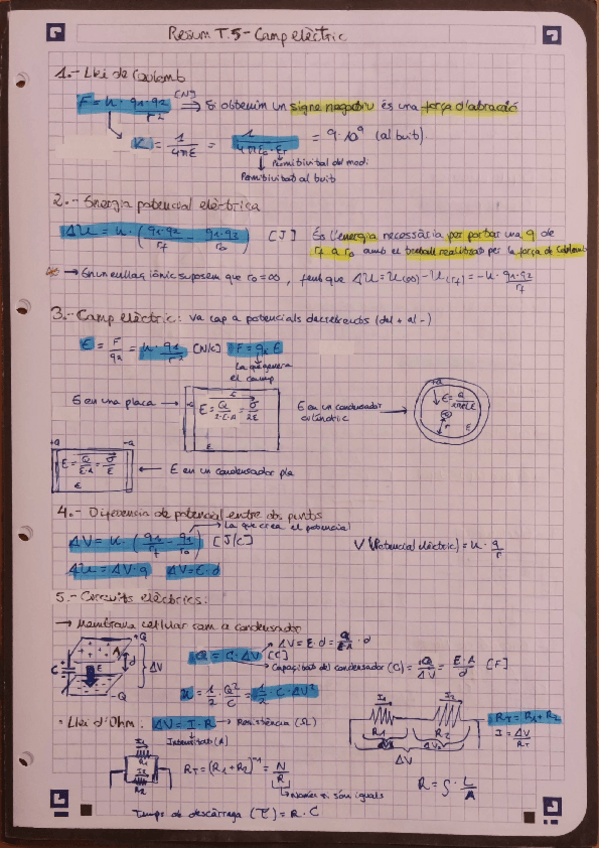 Resum T.5 - Camp elèctric
1.- Llei de Coulomb
F = K · q1·q2 / r² [N] ⇒ Si obtenim un signe negatiu és una força d'atracció
K = 1 / 4πε = 1 / 4πε₀·εr = 9·10⁹ (al buit)
Permitivitat del medi
Permitivitat al buit
2.- Energia potencial elèctrica
ΔU = K · (q1·q2 / rf - q1·q2 / r0) [J] És l'energia necessària per portar una q de
rf a r0 amb el treball realitzat per la força de Coulomb
→ En un enllaç iònic suposem que r0 = ∞, tenim que ΔU = U(∞) - U(rf) = -K · q1·q2 / rf
3.- Camp elèctric: va cap a potencials decreixents (del + al -)
E = F / q2 = K · q1 / r² [N/C] F = q2 E
La que genera
el camp
E en una placa → E = Q / 2·ε·A = σ / 2ε
E en un condensador →
cilíndric
E = Q / ε·A = σ / ε
ε
← E en un condensador pla
4.- Diferència de potencial entre dos punts
La que crea el potencial
ΔV = K · (q1 / rf - q1 / r0) [J/C] V (Potencial elèctric) = K · q / r
ΔU = ΔV · q ΔV = E · d
5.- Circuits elèctrics:
→ Membrana cel·lular com a condensador
+Q
A
C E d ΔV
-Q
Q = C · ΔV [C]
ΔV = E · d = Q / ε·A · d
Capacitat del condensador (C) = Q / ΔV = ε·A / d [F]
U = 1/2 · Q² / C = 1/2 · C · ΔV²
Llei d'Ohm: ΔV = I · R → Resistència (Ω)
Intensitat (A)
I1 I2
R1 R2
ΔV
RT = R1 + R2
I = ΔV / RT
I1
R1
I2
R2
RT = (R1 + R2)⁻¹ = N / R
Només si són iguals
R = ρ · L / A
Temps de descàrrega (τ) = R · C